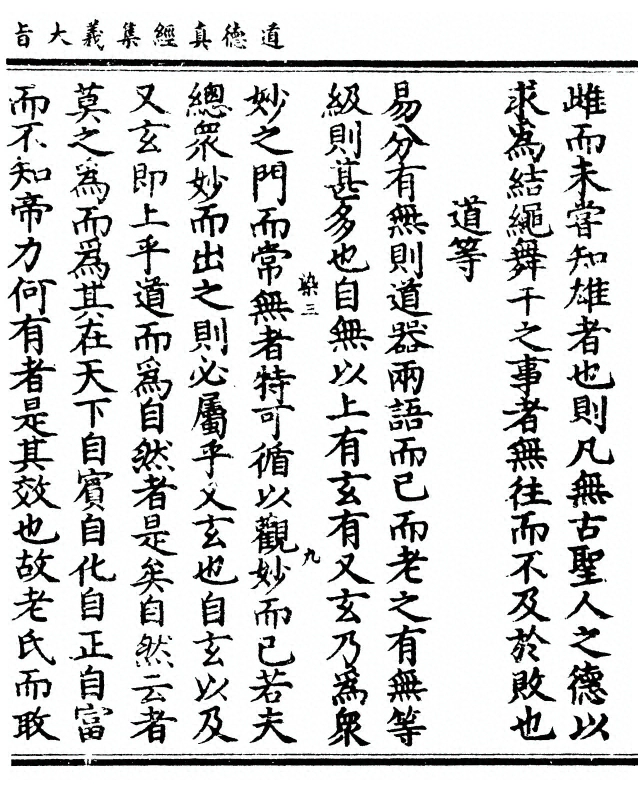 道德真經集義大旨
雌而未嘗知雄者也則凡無古聖人之德以
求為結繩舞干之事者無往而不及於敗也
道等
易分有無則道器兩語而已而老之有無等
級則甚多也自無以上有玄有又玄乃為衆
染三
九
妙之門而常無者特可循以觀妙而已若夫
總衆妙而出之則必屬乎又玄也自玄以及
又玄即上乎道而爲自然者是矣自然云者
莫之為而爲其在天下自賓自化自正自富
而不知帝力何有者是其效也故老氏而敢